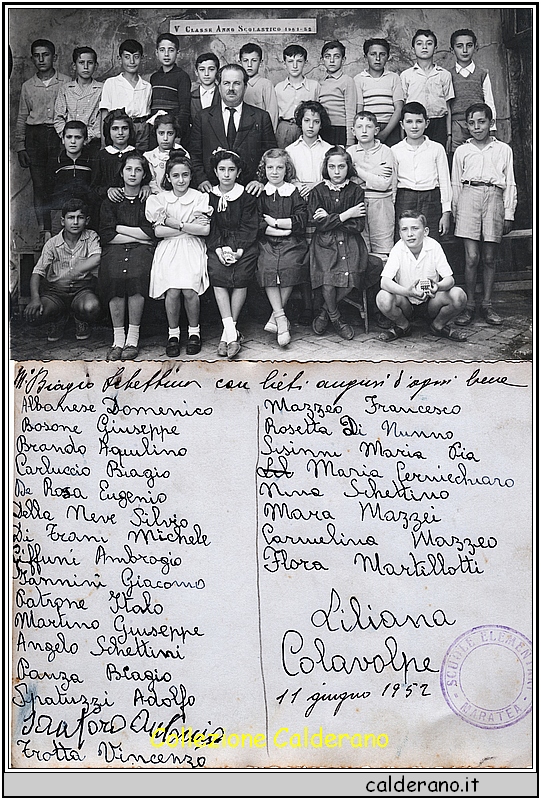 V Classe Anno Scolastico 1951-52
M° Biagio Schettino con lieti auguri d'ogni bene
Albanese Domenico
Bosone Giuseppe
Brando Aquilino
Carluccio Biagio
De Rosa Eugenio
Della Neve Silvio
Di Trani Michele
Giffuni Ambrogio
Iannini Giacomo
Patrone Italo
Martino Giuseppe
Angelo Schettini
Panza Biagio
Spatuzzi Adolfo
Santoro
Trotta Vincenzo
Mazzeo Francesco
Rosetta Di Nunno
Sisinni Maria Pia
Maria Cerniechiaro
Nina Schettino
Mara Mazzei
Carmelina Mazzeo
Flora Martillotti
Liliana
Colavolpe
11 giugno 1952
SCUOLE ELEMENTARI
MARATEA
Collezione Calderano
calderano.it